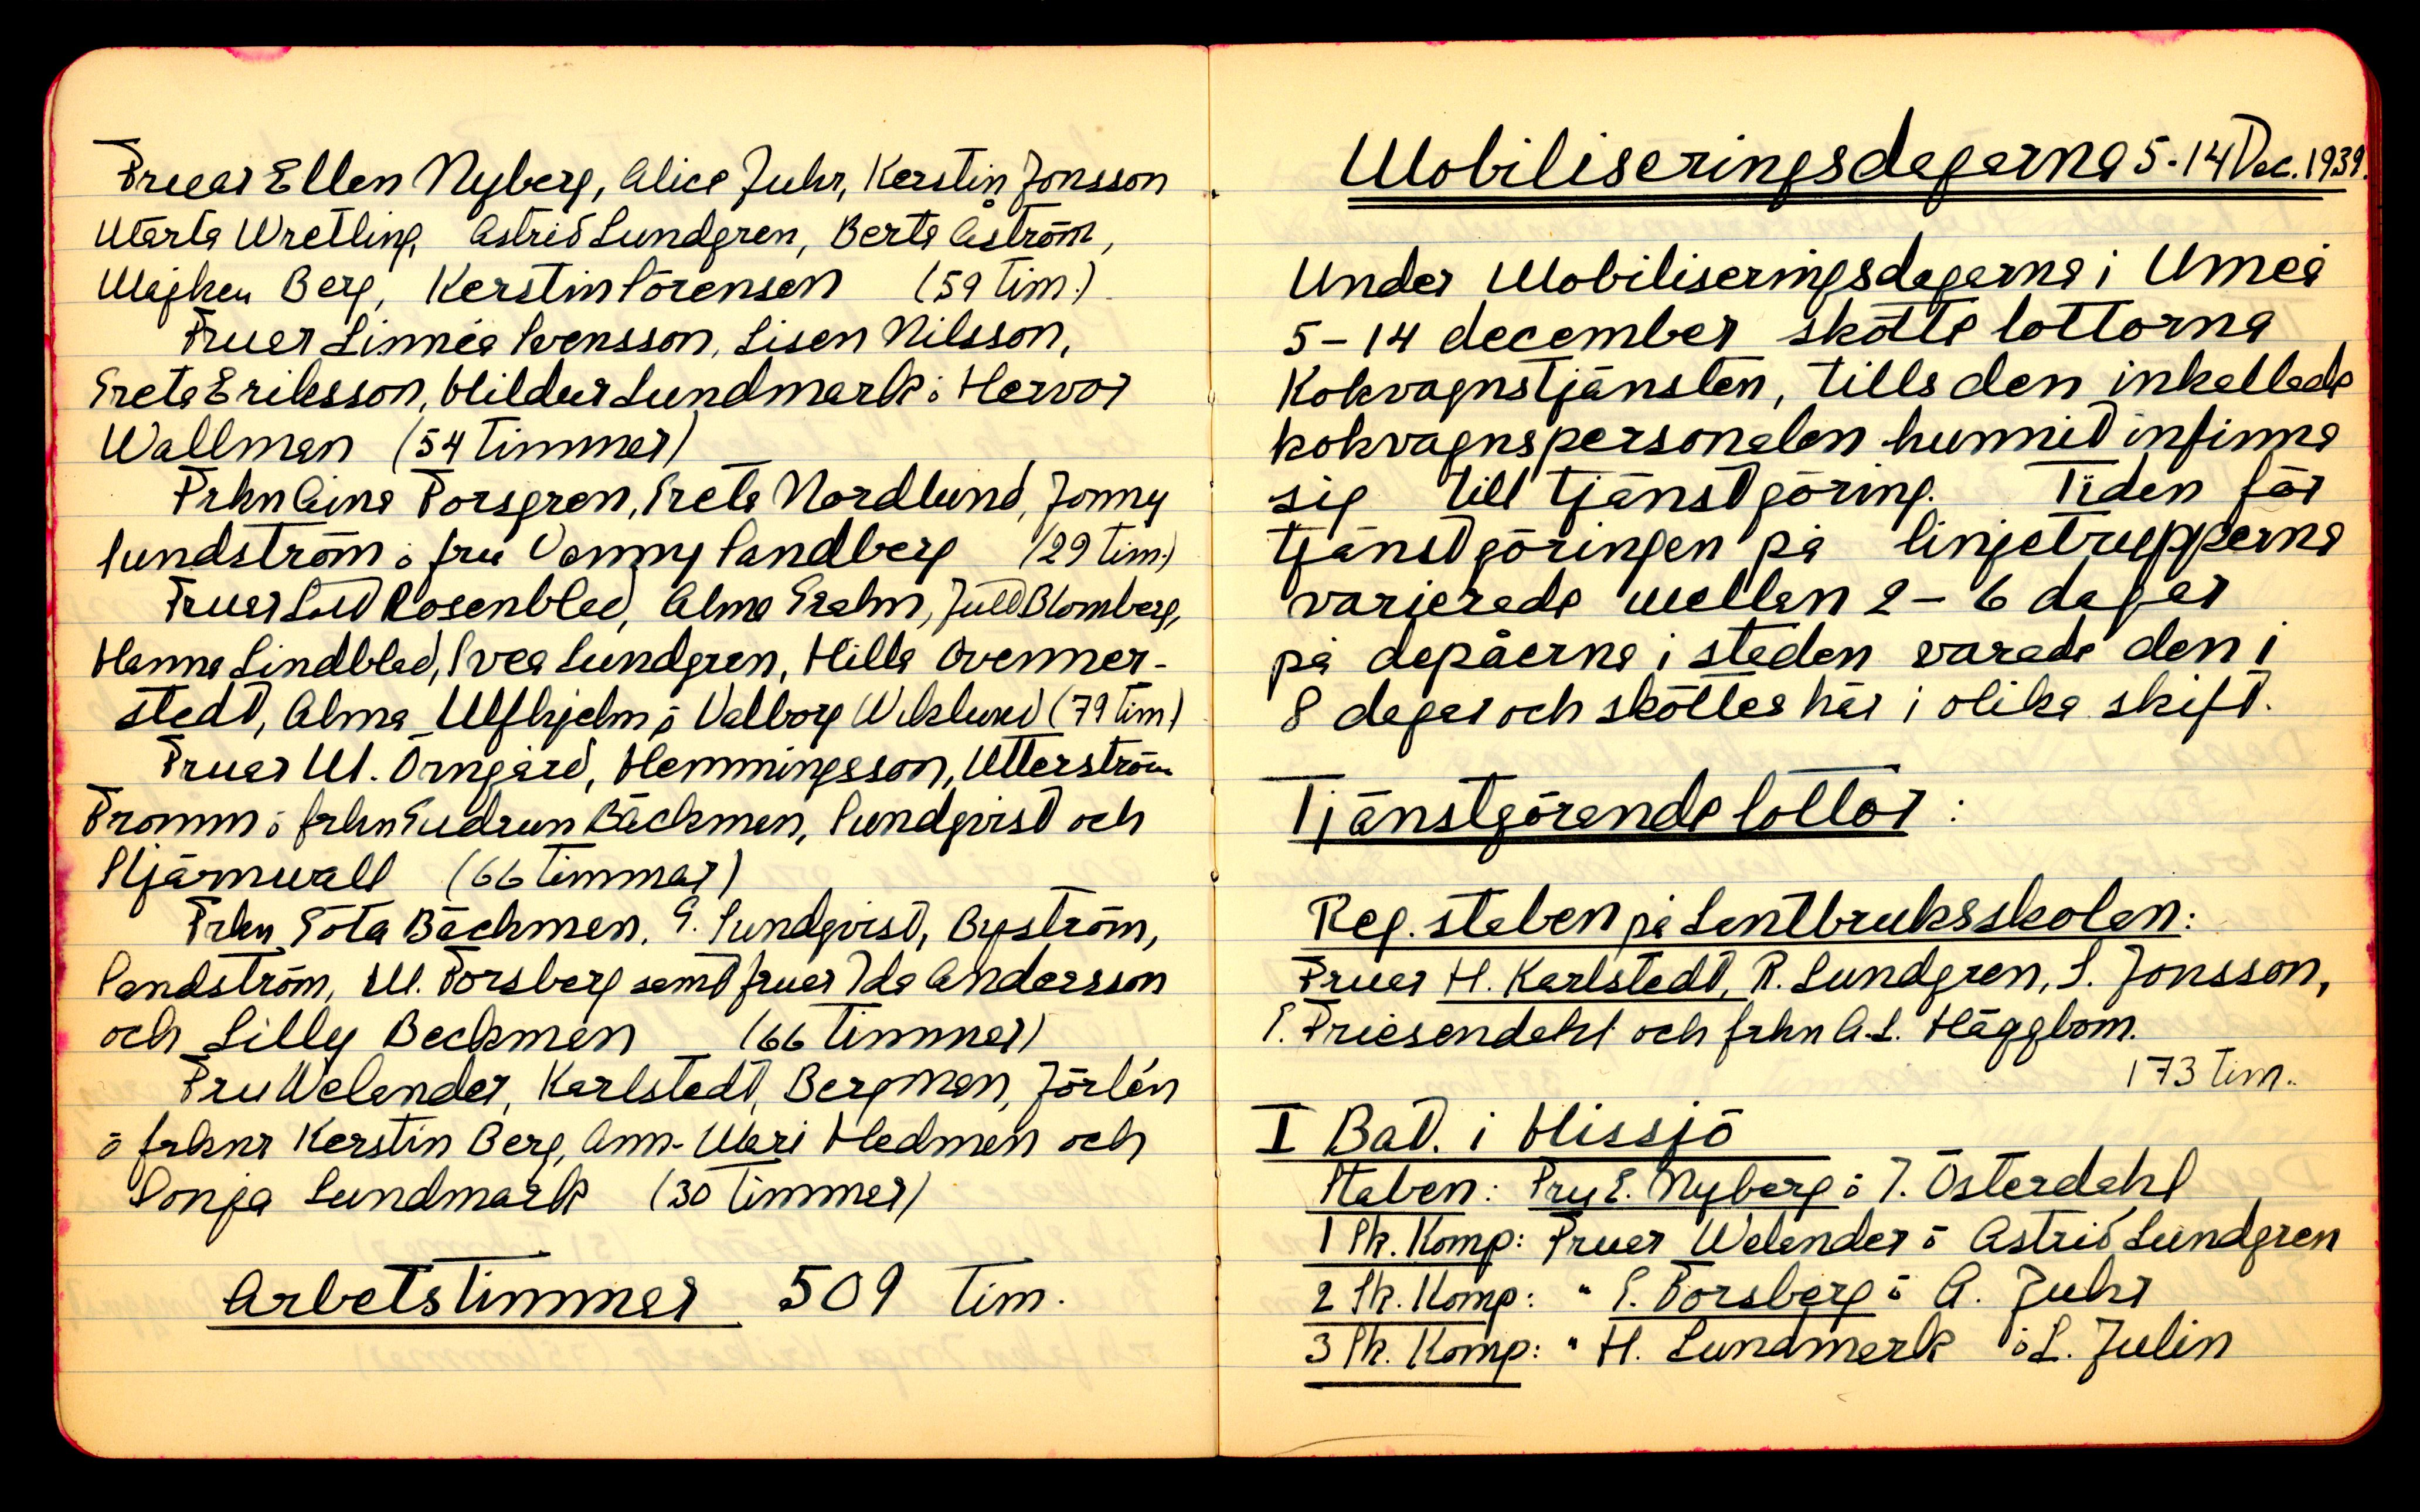 Fruar Ellen Nyberg, Alice Juhr, Kerstin Jonsson
Märta Wretling Astrid Lundgren, Berta Åström,
Majken Berg, Kerstin Sörensen (59 tim.)
Fruar Linnéa Svensson, Lisen Nilsson,
Greta Eriksson, Hildur Lundmark o Hervor
Wallman (54 timmar)
Frkn Aina Forsgren, Greta Nordlund, Jonny
Sundström o fru Vanny Sandberg (29 tim.)
Fruar Rosenblad, Alma Grahn, Judit Blomberg,
Hanna Lindblad, Svea Lundgren, Hilla Ovenner-
stedt, Alma Ulfhjelm o Valborg Wiklund (79 tim)
Fruar M. Örngård, Hemmingsson, Utterström
Fromm o frkn Gudrun Bäckman, Sundqvist och
Stjärnwall (66 timmar)
Frkn Göta Bäckman, G. Sundqvist, Byström,
Sandström, M. Forsberg samt fruar Ida Andersson
och Lilly Beckman (66 timmar)
Fru Welander, Karlstedt, Bergman, Jörlén
o frknr Kerstin Berg, Ann-Mari Hedman och
Sonja Lundmark (30 timmar)
Arbetstimmar 509 tim.
Mobiliseringsdagarna 5-14 Dec. 1939.
Under Mobiliseringsdagarna i Umeå
5-14 december skötte lottorna
Kokvagnstjänsten, tills den inkallade
kokvagnspersonalen hunnit infinna
sig till tjänstgöring. Tiden för
tjänstgöringen på linjetrupperna
varierade mellan 2-6 dagar
på depåerna i staden varade den i
8 dagar och sköttes här i olika skift.
Tjänstgörande lottor:
Reg. staben på Lantbruksskolan:
Fruar H. Karlstedt, R. Lundgren, S. Jonsson,
S. Friesendahl och frkn A.L. Häggbom.
173 tim.
I Bat. i Hissjö
Staben: Fru E. Nyberg o T. Österdahl
1 Sk. Komp: Fruar Welander o Astrid Lundgren
2 Sk. Komp: " S. Forsberg o A. Juhr
3 Sk. Komp: " H. Lundmark o L. Julin